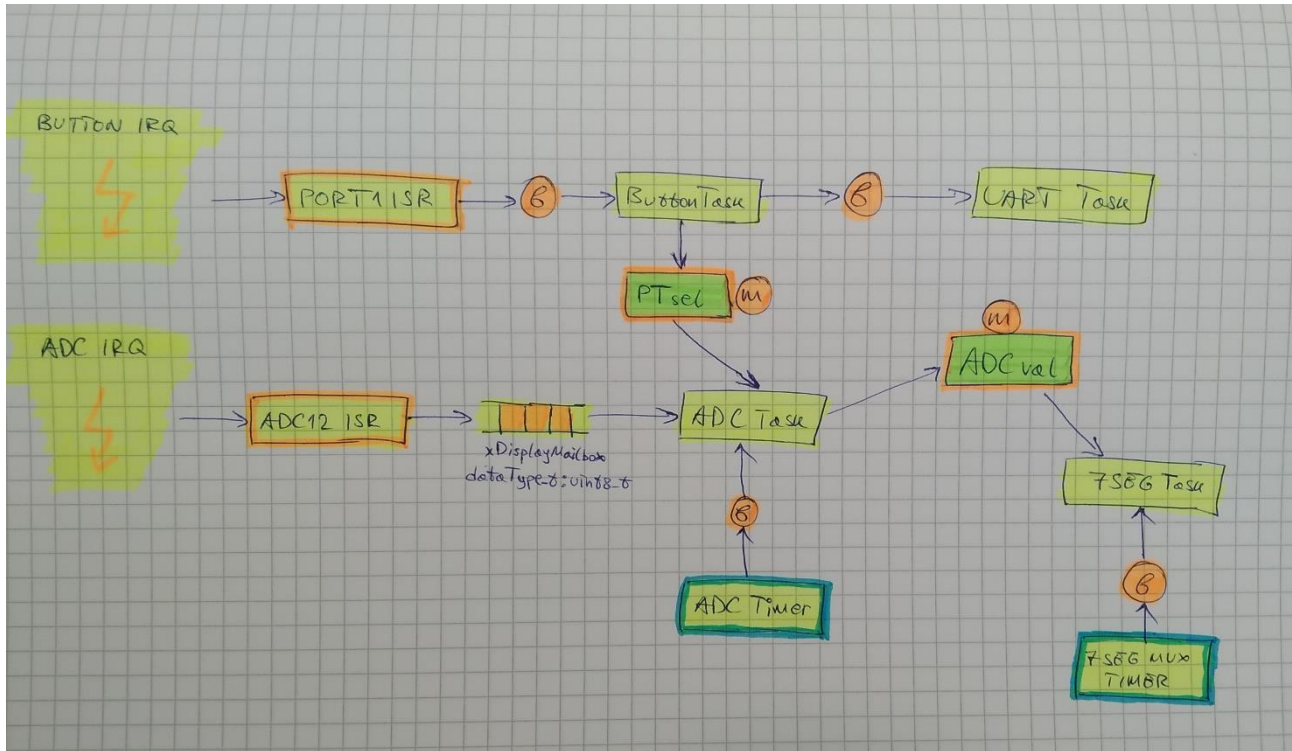 BUTTON IRQ
PORT1 ISR
B
ButtonTask
B
UART Task
PTsel
m
ADC IRQ
ADC12 ISR
xDisplayMailbox
dataType_t: uint8_t
ADC Task
m
ADC val
7SEG Task
B
ADC Timer
B
7SEG MUX
TIMER